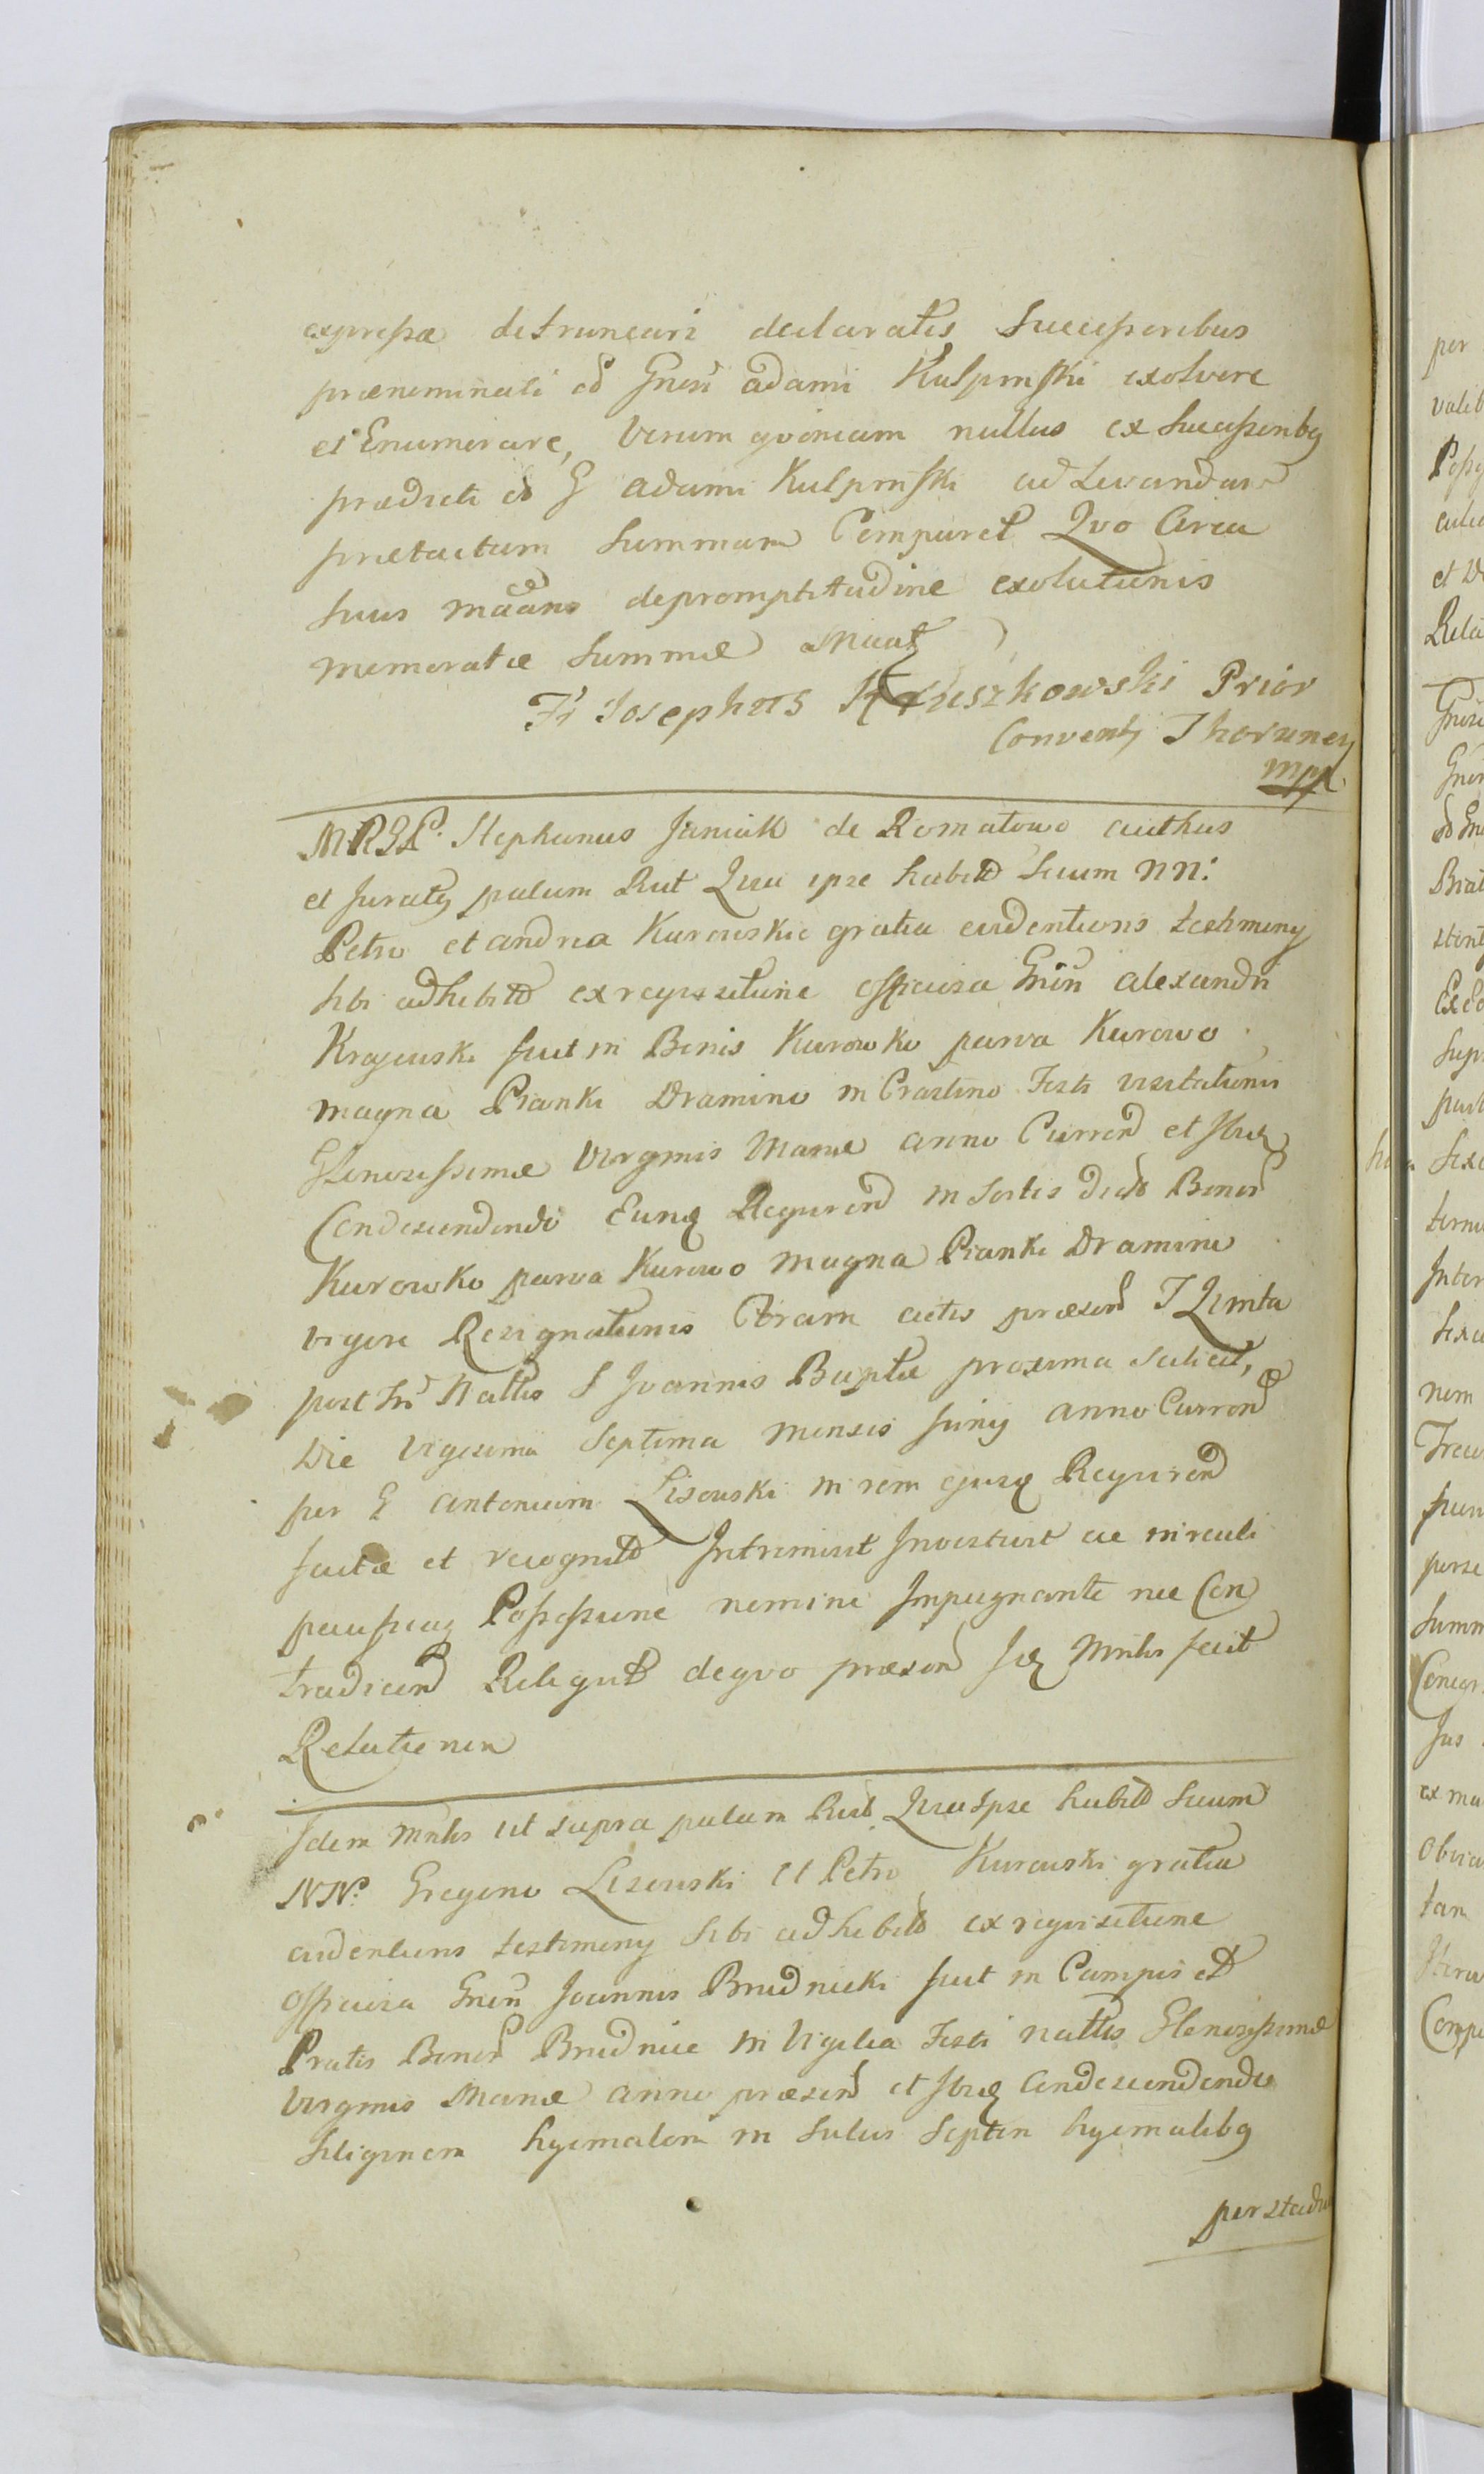 expressæ detruncari declaratis Successoribus
prænominati ol Gnosi Adami Kulpinski exolvere
et Enumerare, Verum qvoniam nullus ex Successoribq
prædicti ol G Adami Kulpinski ad Levandam
prætactam Summam Comparet Qvo Circa
suus de promptitudine exolutionis
memoratæ Summæ
Fr Josephus Kruszkowski Prior
Conventq Thorunen
mpp.
MRGP. Stephanus Janiak de Romatowo authus
et Juratq palam Rut Quia ipse habitis Secum NN:
Petro et Andrea Kurowskie gratia evidentioris testimony
sibi adhibitis ex reqvisitione officiosa Gnosi Alexandri
Krajewski fuit in Bonis Kurowko parva Kurowo
magna Pianki Dramino in Crastino Festi visitationis
Gloriosissimæ Virginis Mariæ anno Curren et Ibidq
Condescendendo Eundq Reqviren in Sortis Dictor Bonor
Kurowko parva Kurowo magna Pianki Dramino
vigore Resignationis Coram actis præsen F Qvinta
post Fn Nattis S Joannis Baptæ proxima Scilicet,
Die Vigesima Septima mensis Juny anno Curren
per G Antonium Lisowski in rem ejusdq Reqviren
factæ et recognitæ Intromisit Investivit ac in reali
pacificaq Possessione nemine Impugnante nec Con
tradicen Reliqvit de qvo præsen Idq Mnlis fecit
Relationem
Idem Mnlis ut supra palam Rut Quia Ipse habitis Secum
NN: Gregorio Lisowski et Petro Kurowski gratia
evidentioris testimony sibi adhibitis ex reqvisitione
officiosa Gnosi Joannis Brudnicki fuit in Campis et
Pratis Bonor Brudnice in Vigilia Festi nattis Gloriosissimæ
Virginis Mariæ anno præsen et Ibidq Condescendendo
Siliginem hyemalem in Solus Septem hyemalibq
per stadia